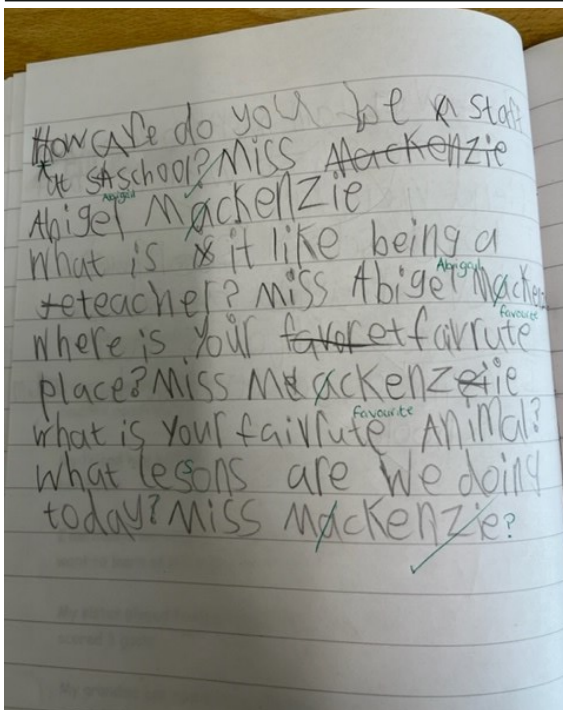 How are do you be a staff
at SAschool? Miss Mackenzie
Abigail
Abigel Mackenzie
What is it like being a
Abigail
teteacher? Miss Abigel Macken
favourite
Where is your favoret fairute
place? Miss Mackenzie
favourite
What is your fairute ANiMal?
What lessons are we doing
today? Miss Mackenzie?